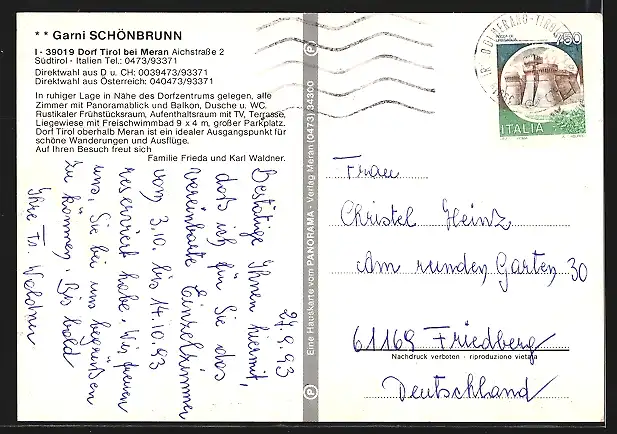 * * Garni SCHÖNBRUNN
I - 39019 Dorf Tirol bei Meran Aichstraße 2
Südtirol - Italien Tel.: 0473/93371
Direktwahl aus D u. CH: 0039473/93371
Direktwahl aus Österreich: 040473/93371
In ruhiger Lage in Nähe des Dorfzentrums gelegen, alle
Zimmer mit Panoramablick und Balkon, Dusche u. WC.
Rustikaler Frühstücksraum, Aufenthaltsraum mit TV, Terrasse,
Liegewiese mit Freischwimmbad 9 x 4 m, großer Parkplatz.
Dorf Tirol oberhalb Meran ist ein idealer Ausgangspunkt für
schöne Wanderungen und Ausflüge.
Auf Ihren Besuch freut sich
Familie Frieda und Karl Waldner.
27.9.93
Bestätige Ihnen hiermit,
daß ich für Sie das
vereinbarte Einzelzimmer
vom 3.10. bis 14.10.93
reserviert habe. Wir freuen
uns, Sie bei uns begrüßen
zu können. Bis bald
Ihre Fr. Waldner
Eine Hauskarte vom PANORAMA - Verlag Meran (0473) 34300
P
P
750
ITALIA
Frau
Christel Heinz
Am runden Garten 30
61169 Friedberg
Nachdruck verboten - riproduzione vietata
Deutschland